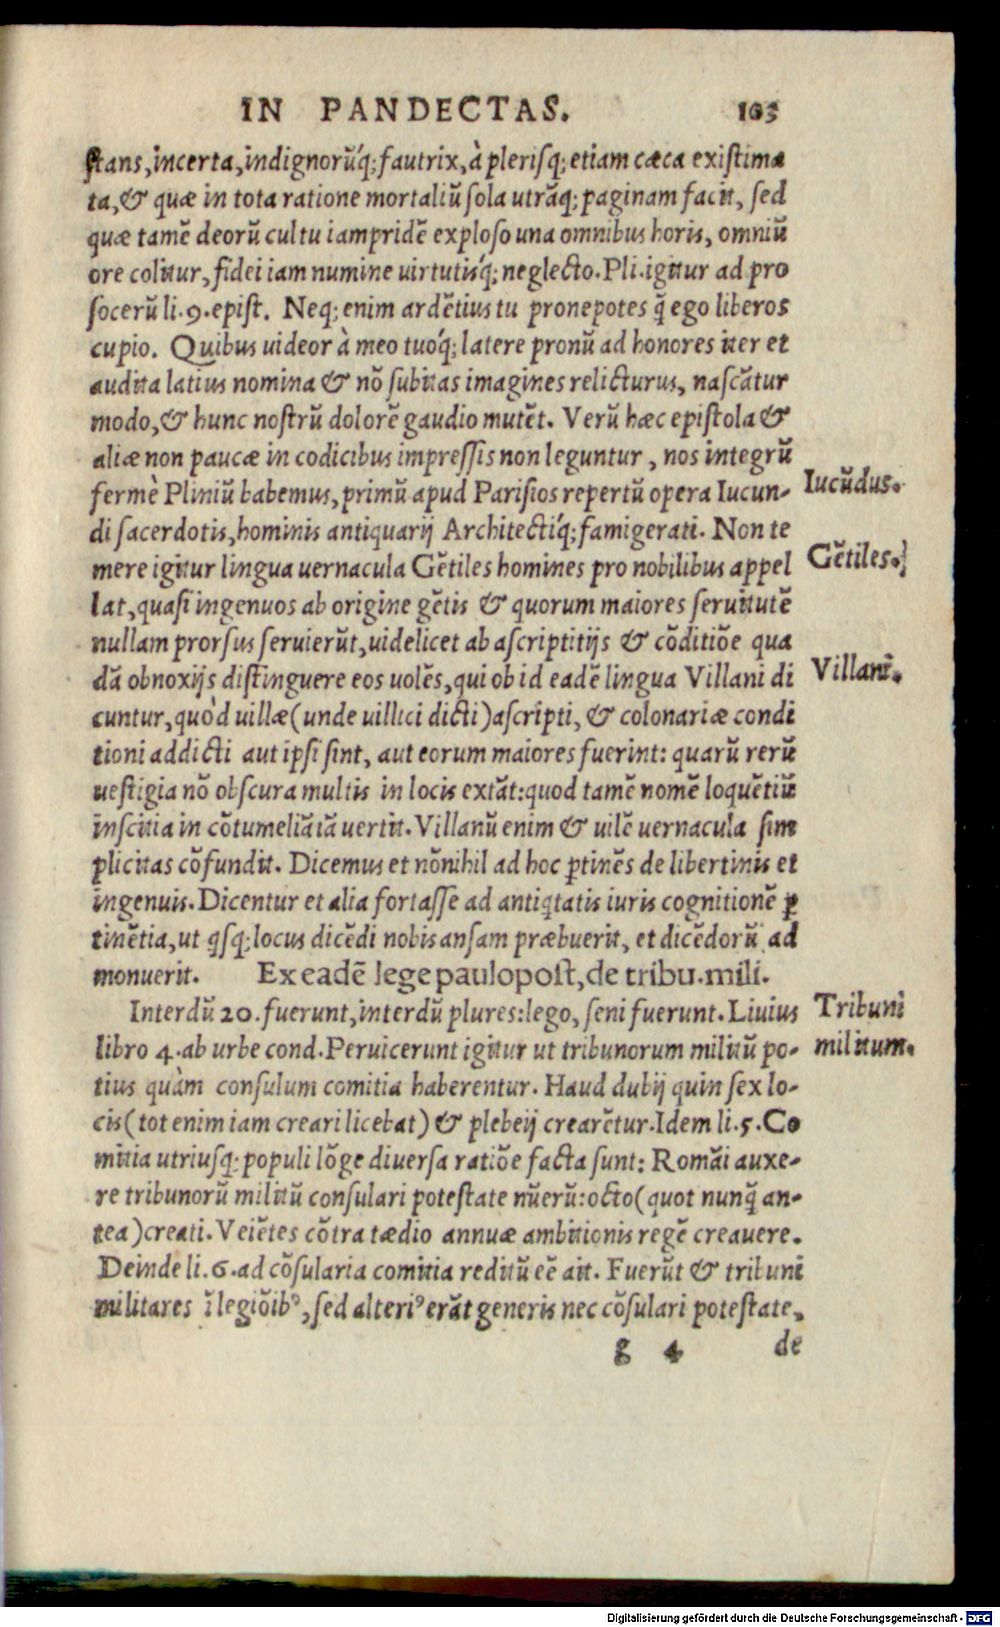 IN PANDECTAS. 103
stans, incerta, indignorũq́; fautrix, à plerisq; etiam cæca existima
ta, & quæ in tota ratione mortaliũ sola utrãq; paginam facit, sed
quæ tamẽ deorũ cultu iampridẽ exploso una omnibus horis, omniũ
ore colitur, fidei iam numine uirtutisq́; neglecto. Pli. igitur ad pro
socerũ li. 9. epist. Neq; enim ardẽtius tu pronepotes q̃ ego liberos
cupio. Quibus uideor à meo tuoq́; latere pronũ ad honores iter et
audita latius nomina & nõ subitas imagines relicturus, nascãtur
modo, & hunc nostrũ dolorẽ gaudio mutẽt. Verũ hæc epistola &
aliæ non paucæ in codicibus impressis non leguntur, nos integrũ
fermè Pliniũ habemus, primũ apud Parisios repertũ opera Iucun-
Iucũdus.
di sacerdotis, hominis antiquarij Architectiq́; famigerati. Non te
mere igitur lingua uernacula Gẽtiles homines pro nobilibus appel
Gẽtiles.
lat, quasi ingenuos ab origine gẽtis & quorum maiores seruitutẽ
nullam prorsus seruierũt, uidelicet ab ascriptitijs & cõditiõe qua
dã obnoxijs distinguere eos uolẽs, qui ob id eadẽ lingua Villani di
Villani.
cuntur, quòd uillæ (unde uillici dicti) ascripti, & colonariæ condi
tioni addicti aut ipsi sint, aut eorum maiores fuerint: quarũ rerũ
uestigia nõ obscura multis in locis extãt: quod tamẽ nomẽ loquẽtiũ
inscitia in cõtumeliã iã uertit. Villanũ enim & uilẽ uernacula sim
plicitas cõfundit. Dicemus et nõnihil ad hoc ꝑtinẽs de libertinis et
ingenuis. Dicentur et alia fortasse ad antiq̃tatis iuris cognitionẽ ꝑ
tinẽtia, ut q̃sq; locus dicẽdi nobis ansam præbuerit, et dicẽdorũ ad
monuerit. Ex eadẽ lege paulopost, de tribu. mili.
Interdũ 20. fuerunt, interdũ plures: lego, seni fuerunt. Liuius
Tribuni
libro 4. ab urbe cond. Peruicerunt igitur ut tribunorum militũ po-
militum.
tius quàm consulum comitia haberentur. Haud dubij quin sex lo-
cis (tot enim iam creari licebat) & plebeij crearẽtur. Idem li. 5. Co
mitia utriusq; populi lõge diuersa ratiõe facta sunt: Romãi auxe-
re tribunorũ militũ consulari potestate nũerũ: octo (quot nunq̃ an-
tea) creati. Veiẽtes cõtra tædio annuæ ambitionis regẽ creauere.
Deinde li. 6. ad cõsularia comitia reditũ eẽ ait. Fuerũt & tribuni
militares ĩ legiõibꝰ, sed alteriꝰ erãt generis nec cõsulari potestate,
g 4 de
Digitalisierung gefördert durch die Deutsche Forschungsgemeinschaft - DFG